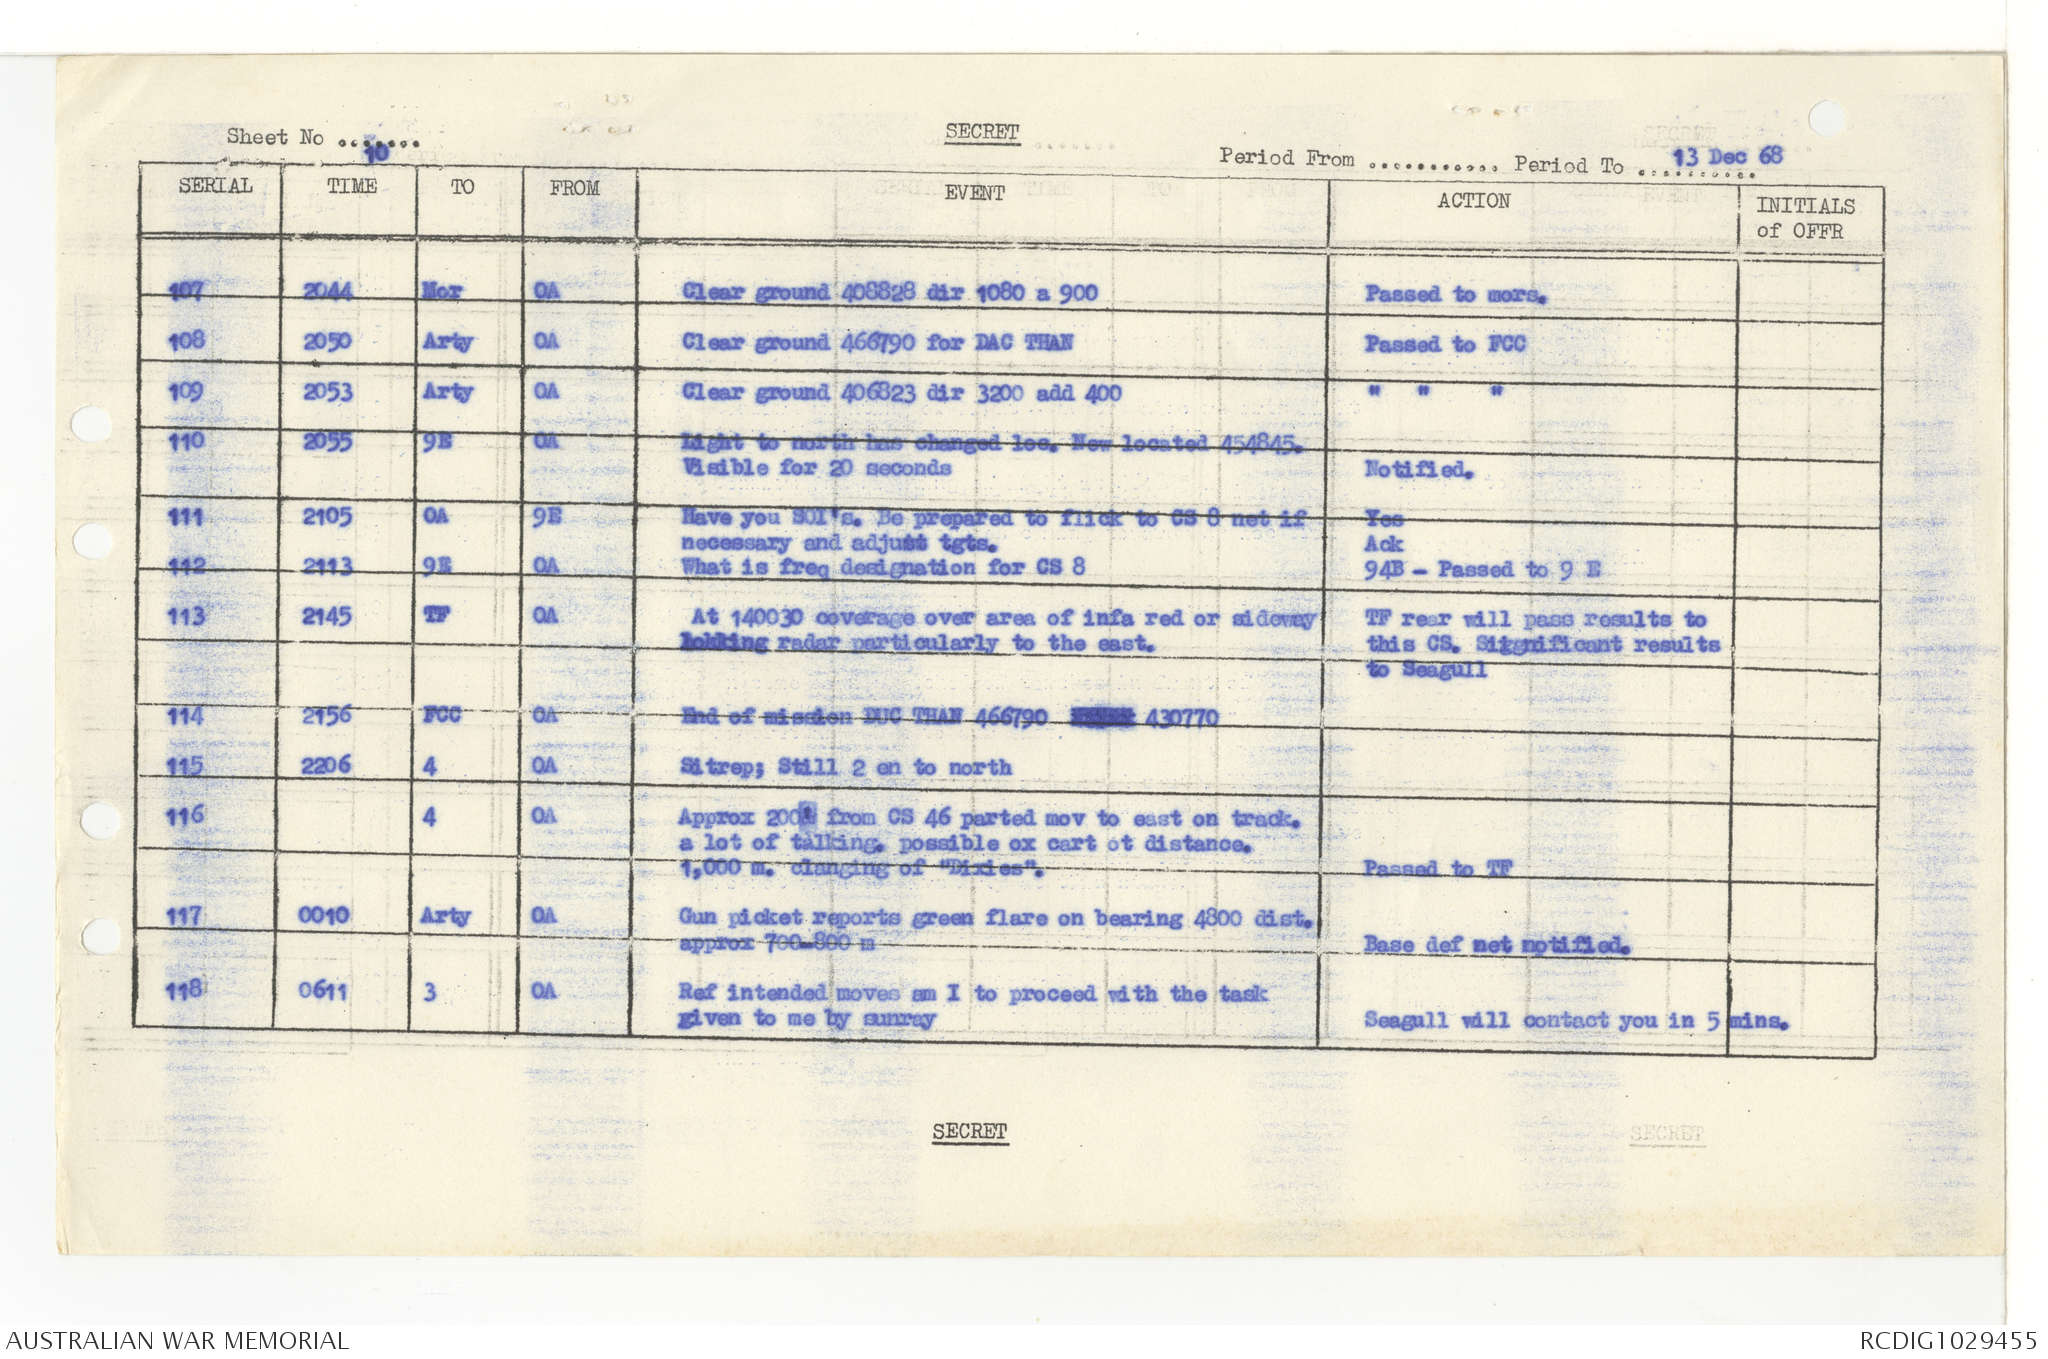 Sheet No ....... 10
SECRET
Period From ........... Period To .......... 13 Dec 68
SERIAL TIME TO FROM EVENT ACTION INITIALS of OFFR
107 2044 Mor OA Clear ground 408828 dir 1080 a 900 Passed to mors.
108 2050 Arty OA Clear ground 466790 for DAC THAN Passed to FCC
109 2053 Arty OA Clear ground 406823 dir 3200 add 400 " " "
110 2055 9E OA Light to north has changed loc. Now located 454845.
Visible for 20 seconds Notified.
111 2105 OA 9E Have you SOI's. Be prepared to flick to CS 8 net if Yes
necessary and adjust tgts. Ack
112 2113 9E OA What is freq designation for CS 8 94B - Passed to 9 E
113 2145 TF OA At 140030 coverage over area of infa red or sideway TF rear will pass results to
lokking radar particularly to the east. this CS. Sitgnificant results
to Seagull
114 2156 FCC OA End of mission DUC THAN 466790 430770
115 2206 4 OA Sitrep; Still 2 en to north
116 4 OA Approx 200 from CS 46 parted mov to east on track.
a lot of talking. possible ox cart ot distance.
1,000 m. clanging of "Dixies". Passed to TF
117 0010 Arty OA Gun picket reports green flare on bearing 4800 dist.
approx 700-800 m Base def net notified.
118 0611 3 OA Ref intended moves am I to proceed with the task
given to me by sunray Seagull will contact you in 5 mins.
SECRET
SECRET
AUSTRALIAN WAR MEMORIAL
RCDIG1029455